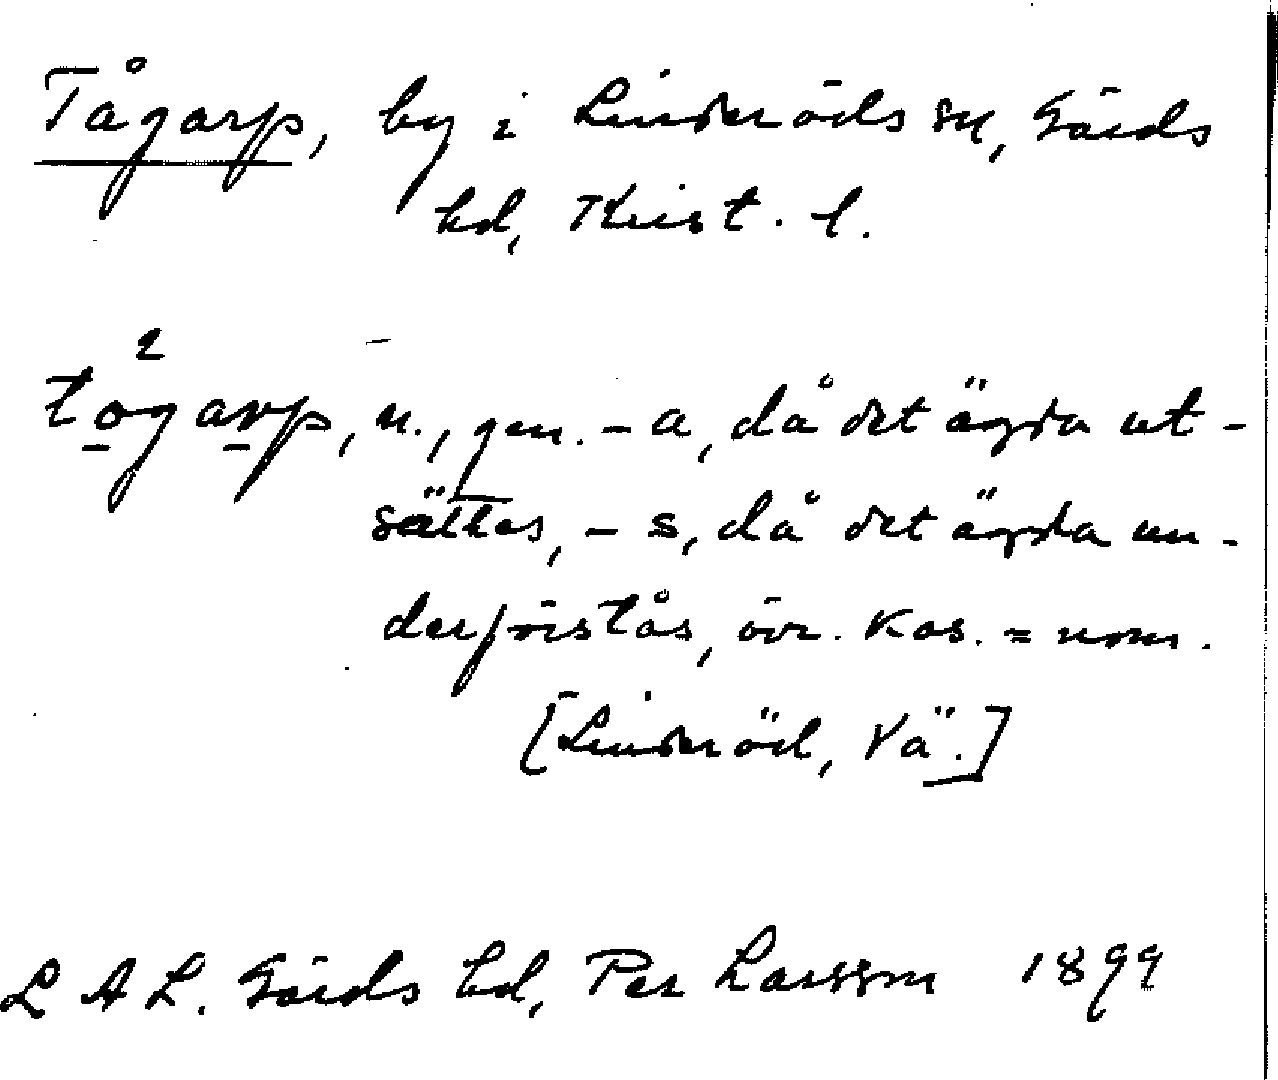 Tågarp, by i Linderöds sn, Gärds
hd, Krist. l.
2
togarp, n., gen. - a, då det ägda ut-
sättes, - s, då det ägda un-
derförstås, övr. kas. = nom.
[Linderöd, Vä.]
L A L. Gärds hd, Per Larsson 1899